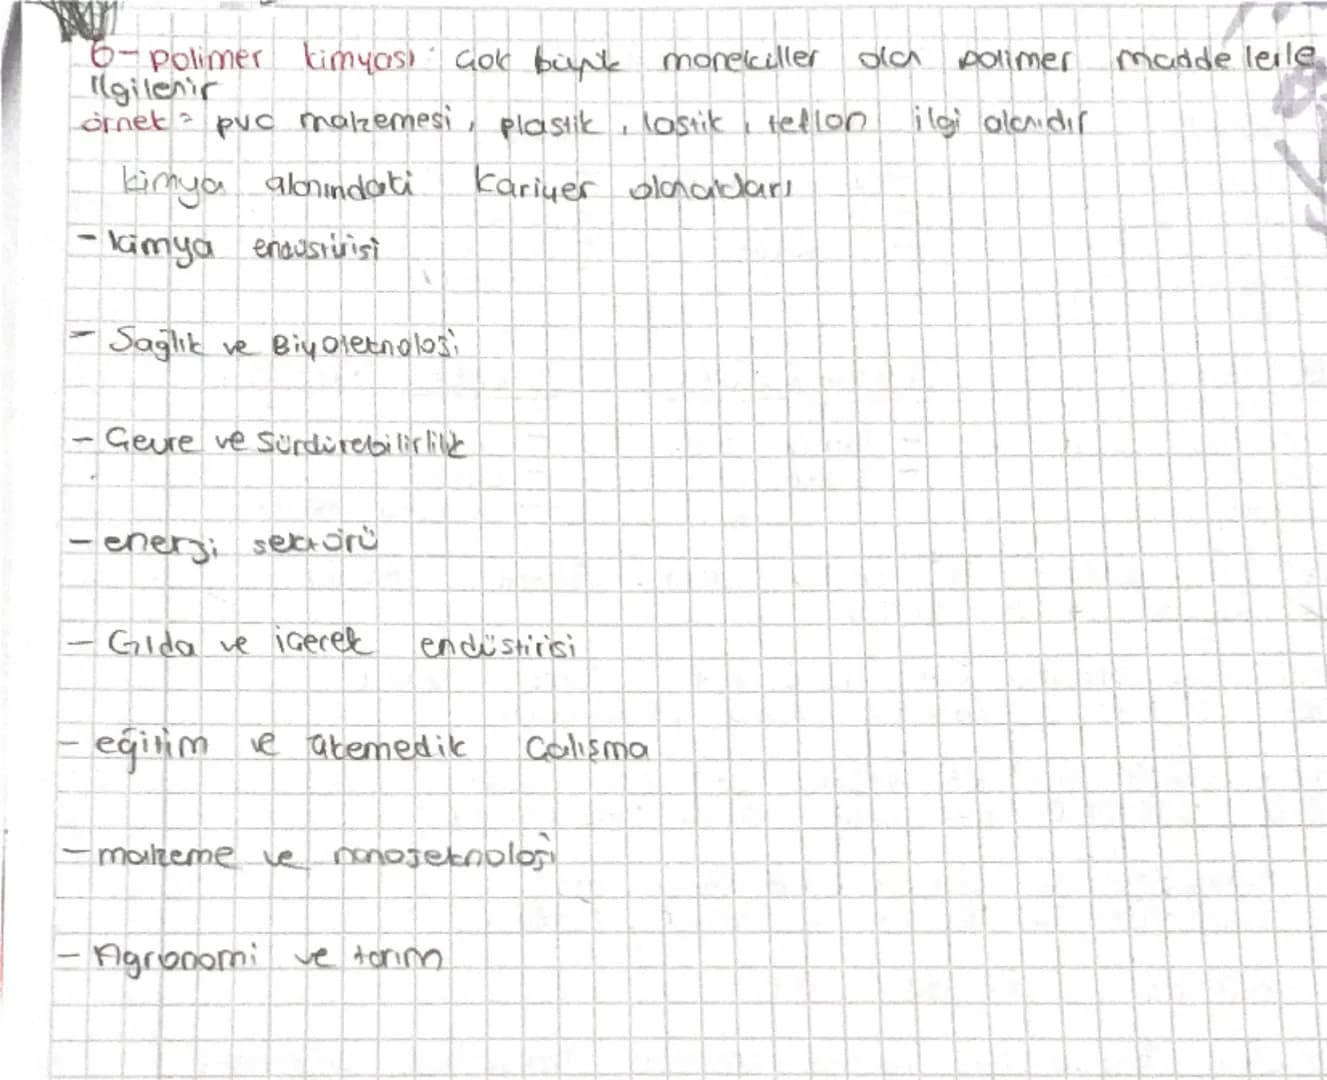 6- polimer kimyası: çok büyük moleküller olan polimer maddelerle
ilgilenir
örnek = pvc malzemesi, plastik, lastik, teflon ilgi alanıdır
kimya alanındaki kariyer olanakları
- kimya endüstirisi
- Sağlık ve Biyoteknoloji
- Çevre ve Sürdürebilirlik
- enerji sektörü
- Gıda ve içecek endüstirisi
- eğitim ve akemedik Çalışma
- malzeme ve nanoteknoloji
- Agronomi ve tarım